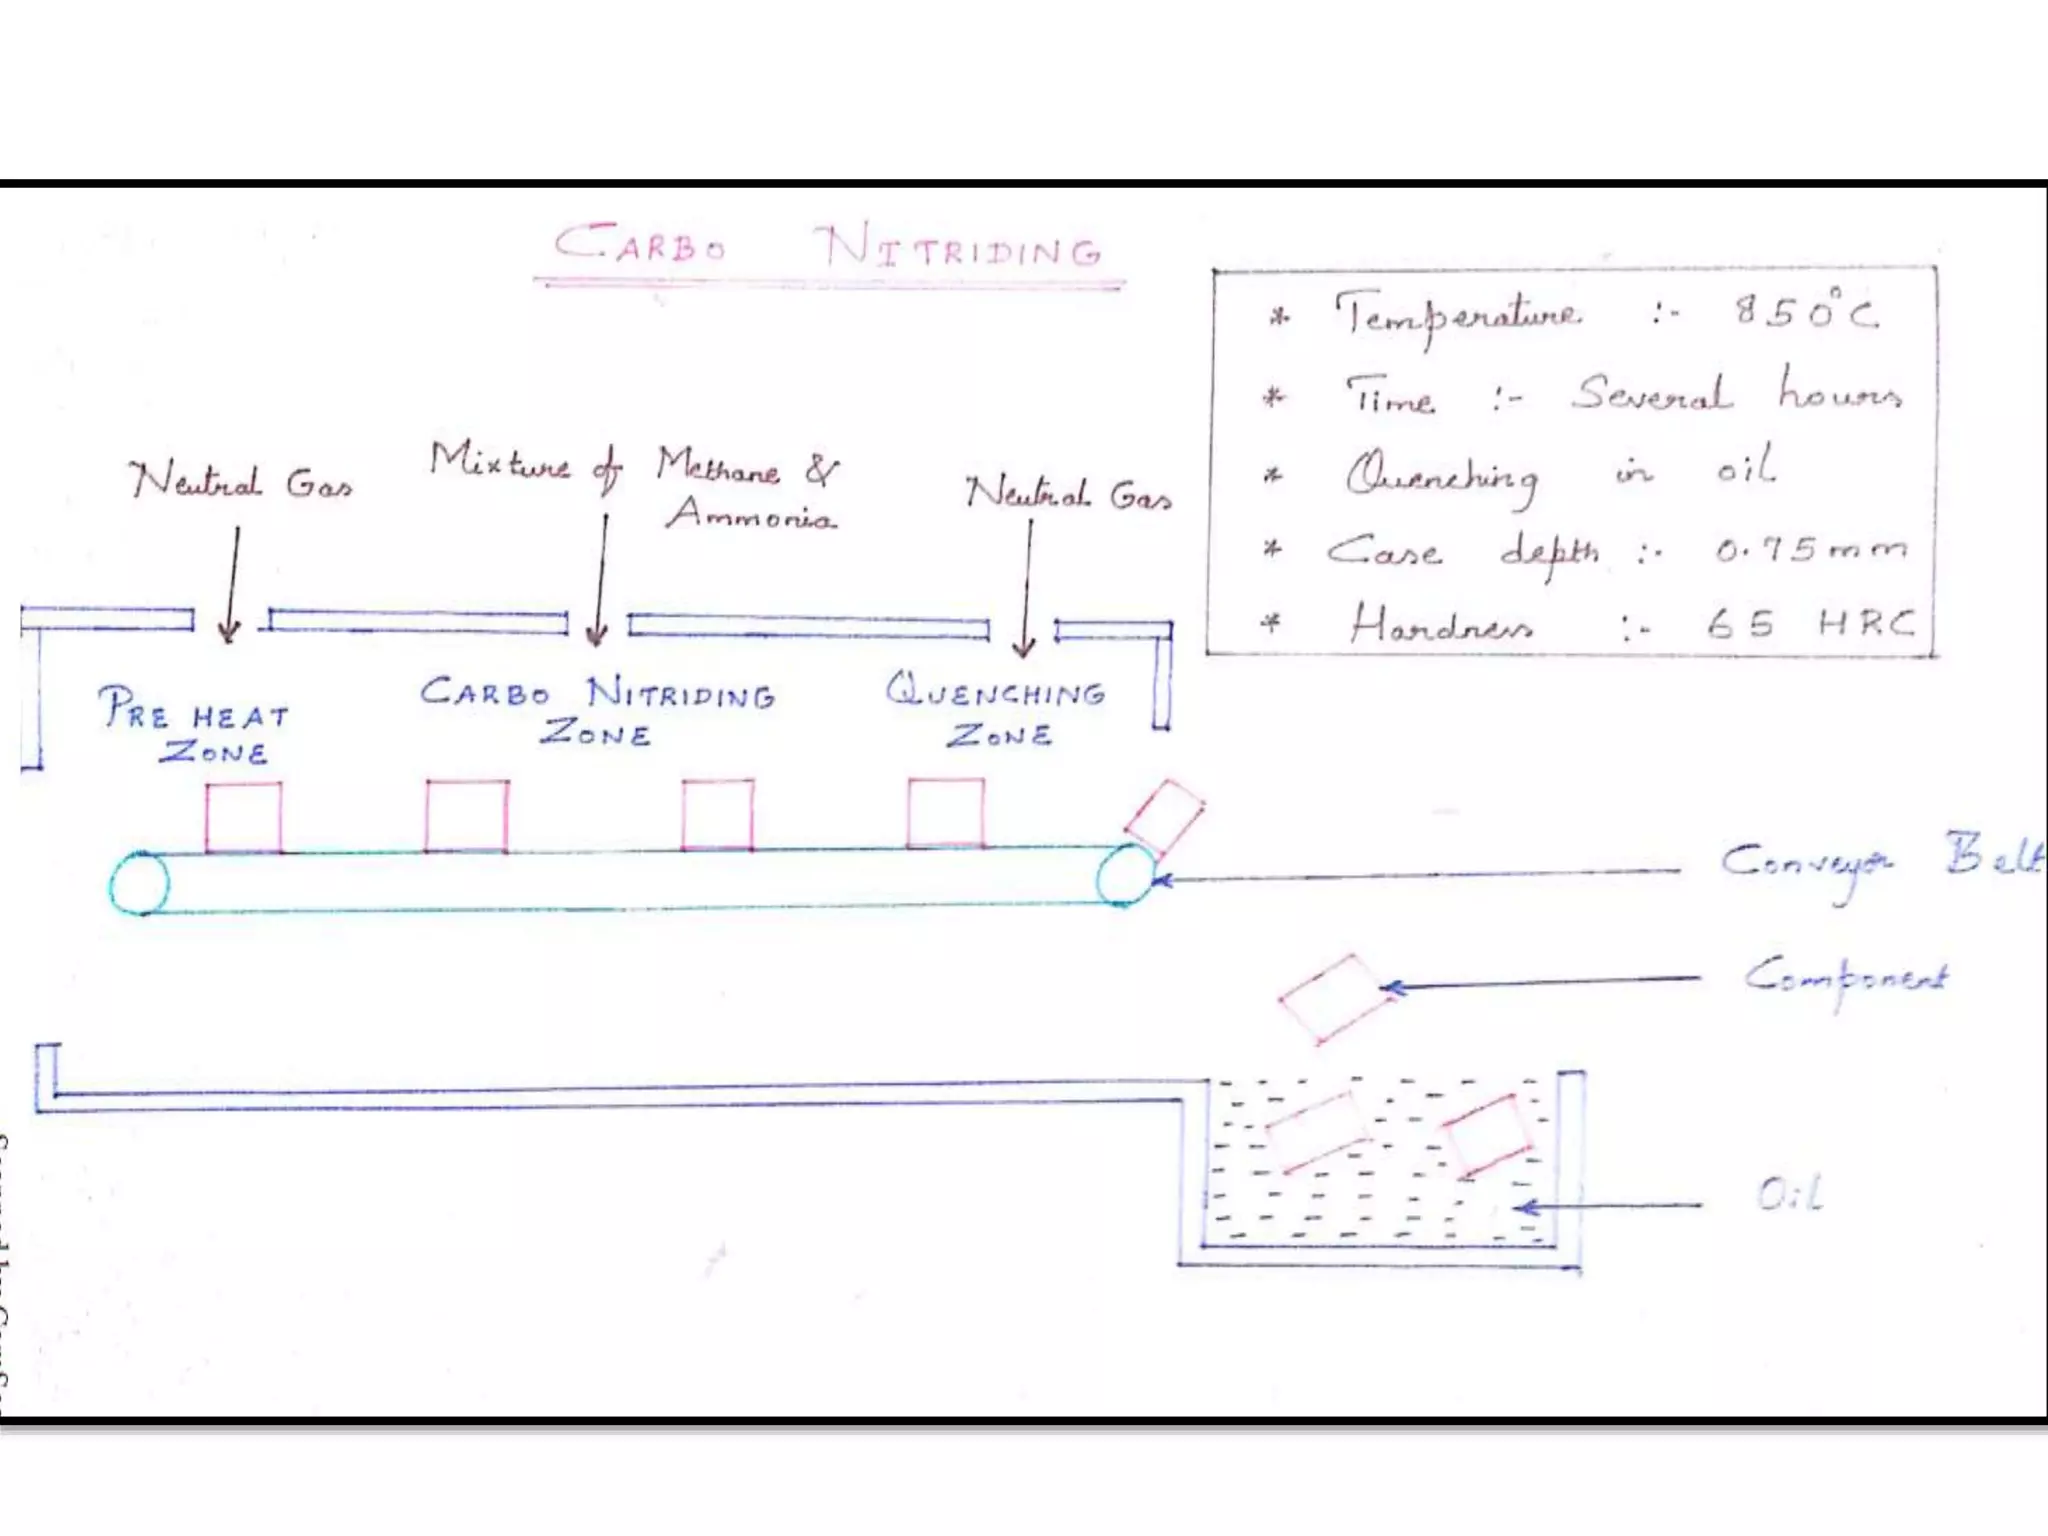 CARBO NITRIDING
* Temperature :- 850°C
* Time :- Several hours
* Quenching in oil
* Case depth :- 0.75mm
* Hardness :- 65 HRC
Neutral Gas
Mixture of Methane &
Ammonia
Neutral Gas
PRE HEAT
ZONE
CARBO NITRIDING
ZONE
QUENCHING
ZONE
Conveyor Belt
Component
Oil